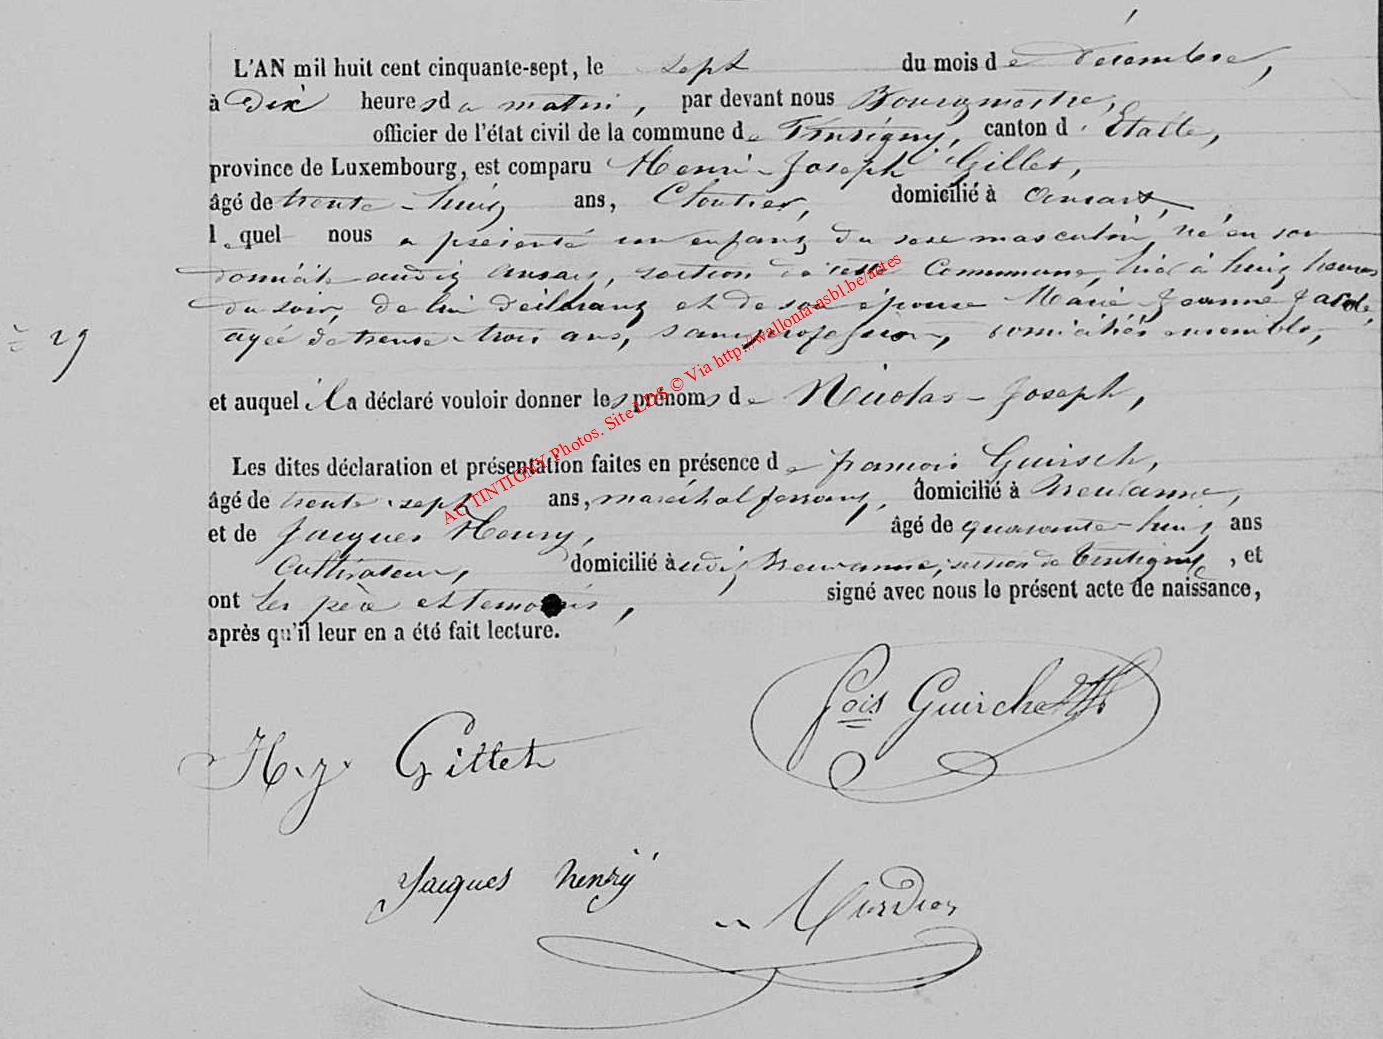 L'AN mil huit cent cinquante-sept, le sept du mois de décembre,
à dix heures du matin, par devant nous Bourgmestre,
officier de l'état civil de la commune de Tintigny, canton d'Etalle,
province de Luxembourg, est comparu Henri-Joseph Gillet,
âgé de trente-huit ans, Cloutier, domicilié à Ansart,
lequel nous a présenté un enfant du sexe masculin, né en son
domicile audit Ansart, section de cette Commune, hier à huit heures
du soir, de lui déclarant et de son épouse Marie-Jeanne
agée de trente-trois ans, sans profession, domiciliés ensemble,
29
et auquel il a déclaré vouloir donner les prénoms de Nicolas-Joseph,
Les dites déclaration et présentation faites en présence de françois Guirsch,
âgé de trente-sept ans, maréchal ferrant, domicilié à Breuvanne,
et de Jacques Henry, âgé de quarante-huit ans
Cultivateur, domicilié à udit Breuvanne, section de Tintigny, et
ont les père et temoins, signé avec nous le présent acte de naissance,
après qu'il leur en a été fait lecture.
fois Guirche
H. j. Gillet
Jacques henry
ACTINTIGNY Photos. Site LDS © Via http://wallonia-asbl.be/actes